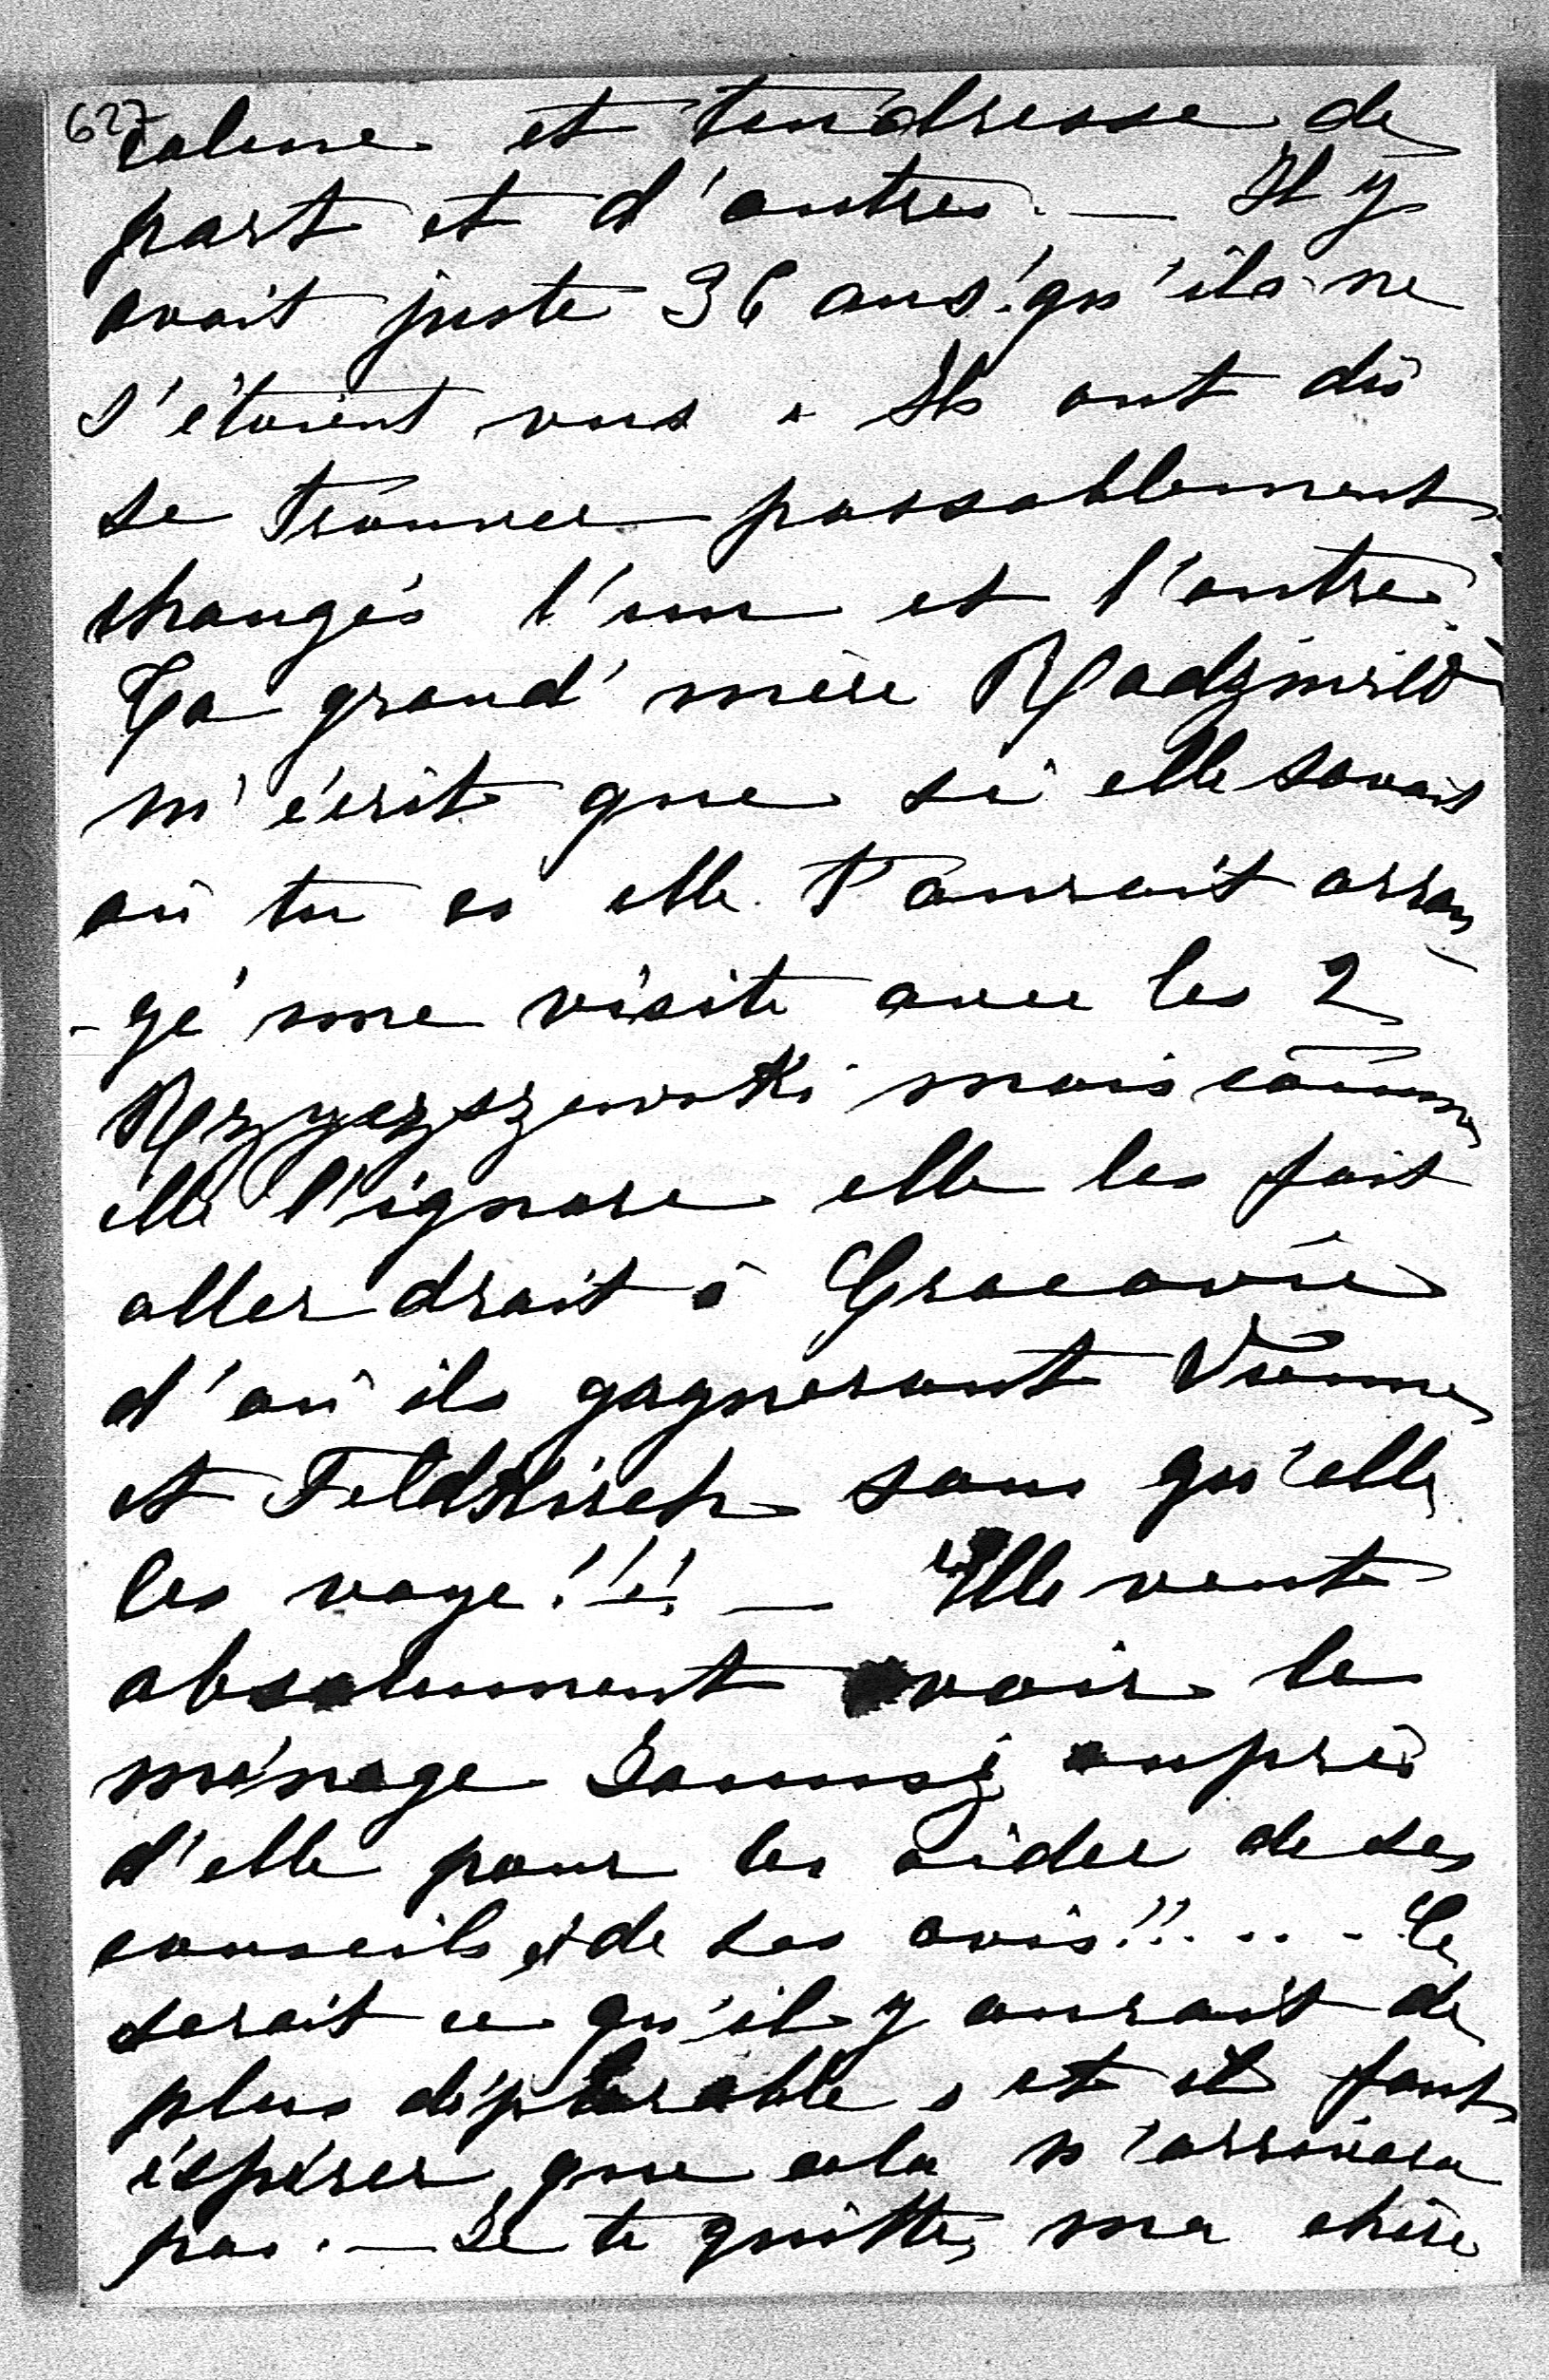 627
calme et tendresse de
part et d'autre. — Il y
avait juste 36 ans! qu'ils ne
s'étaient vus. Ils ont dû
se trouver passablement
changés l'un et l'autre.
Ta grand'mère Radziwill
m'écrit que si elle savait
où tu es elle t'aurait arran
-gé une visite avec les 2
mais comme
elle l'ignore elle les fait
aller droit à Cracovie
d'où ils gagneront Vienne
et Feldkirch sans qu'elle
les voye!!! — Elle veut
absolument voir le
ménage auprès
d'elle pour les aider de ses
conseils et de ses avis!! . . . Ce
serait ce qu'il y aurait de
plus déplorable, et il faut
éspérer que cela n'arrivera
pas. — Je te quitte, ma chère